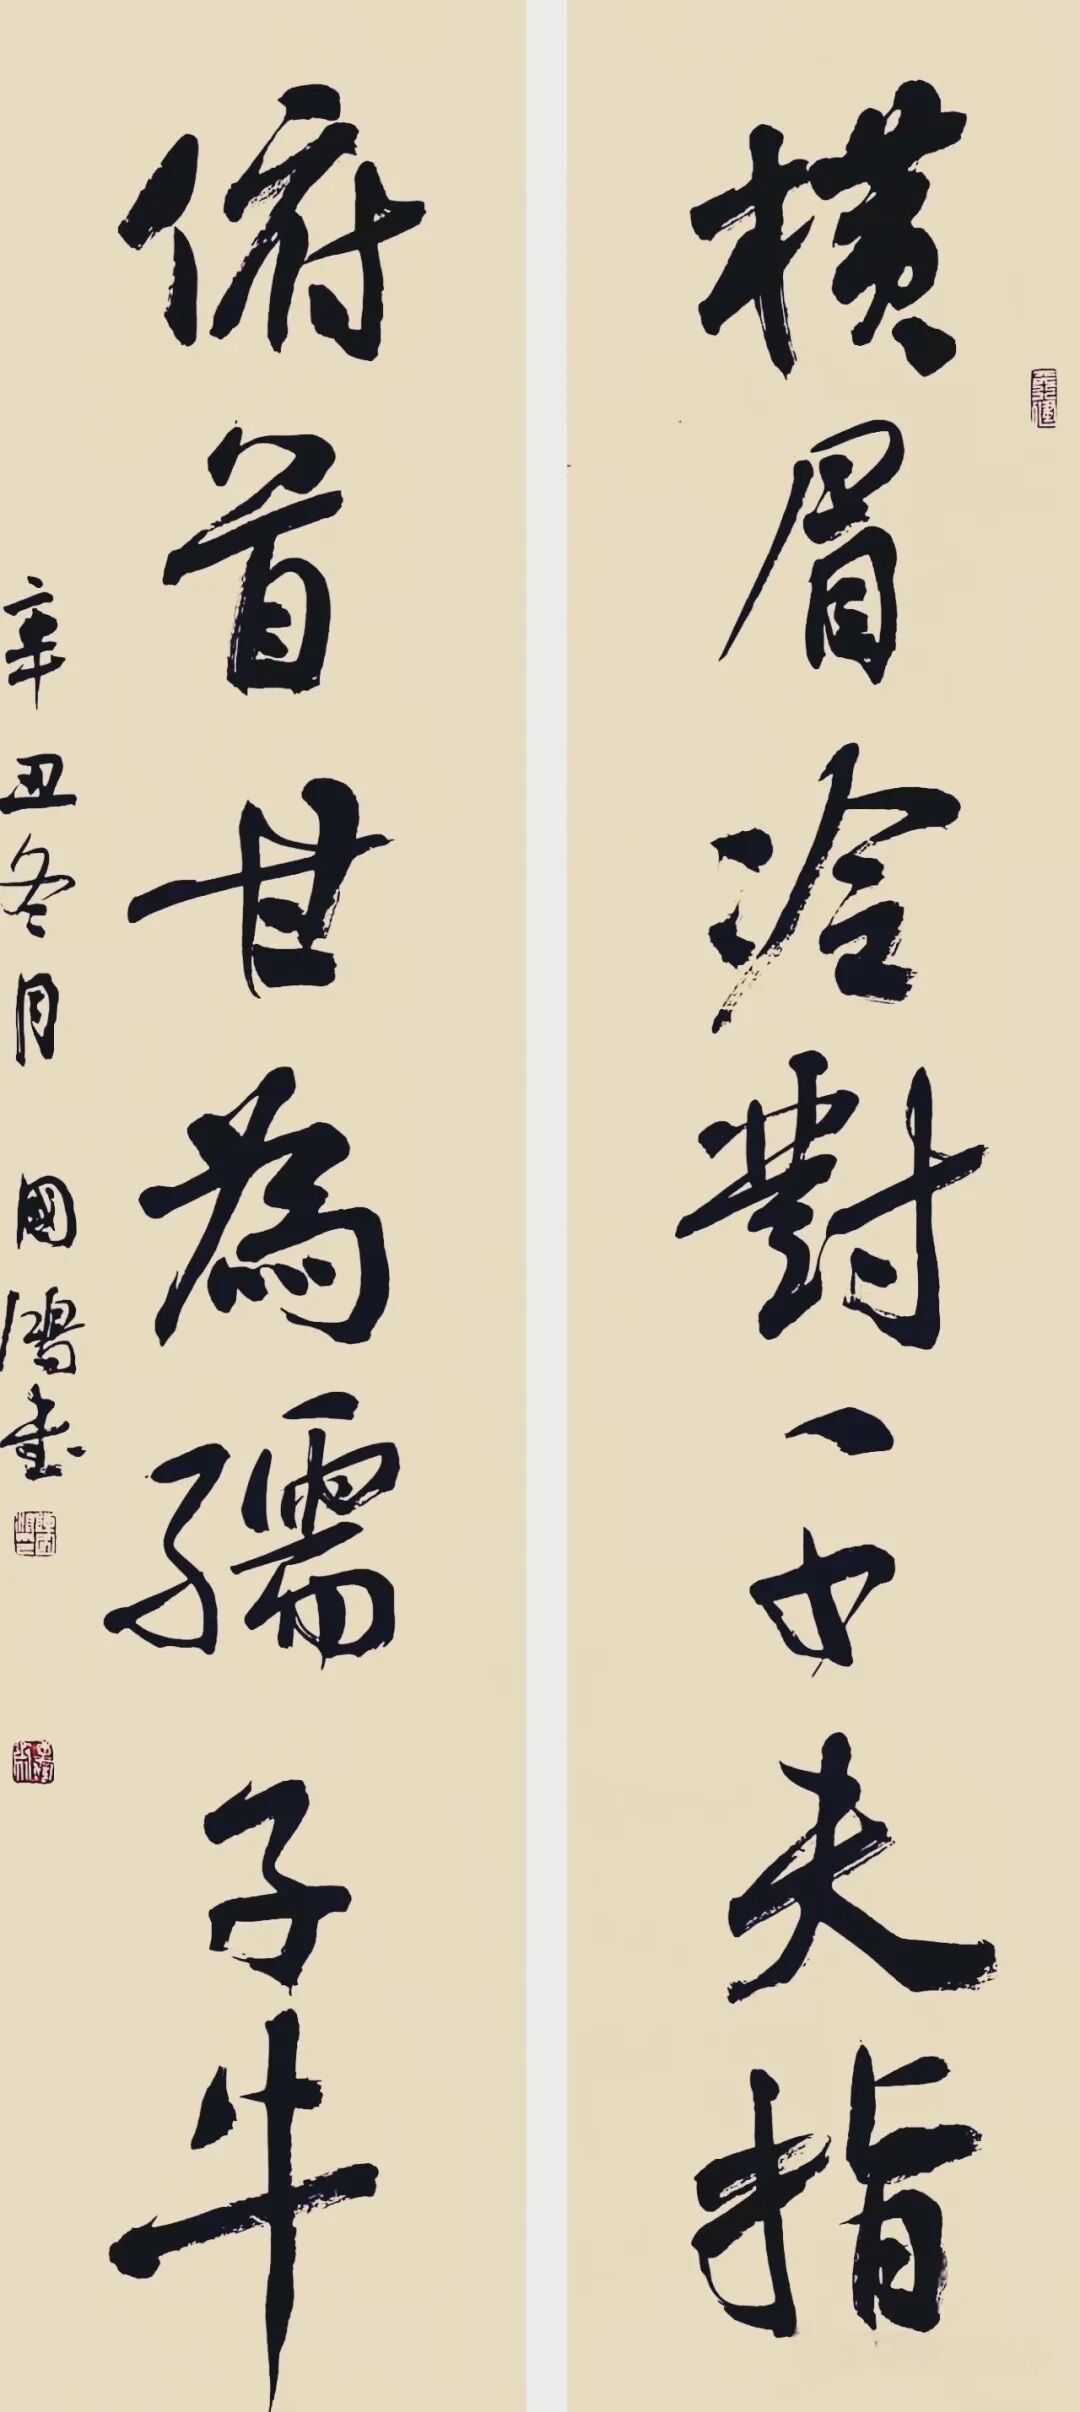 横眉冷對千夫指
俯首甘為孺子牛
辛丑冬月 國鴻書